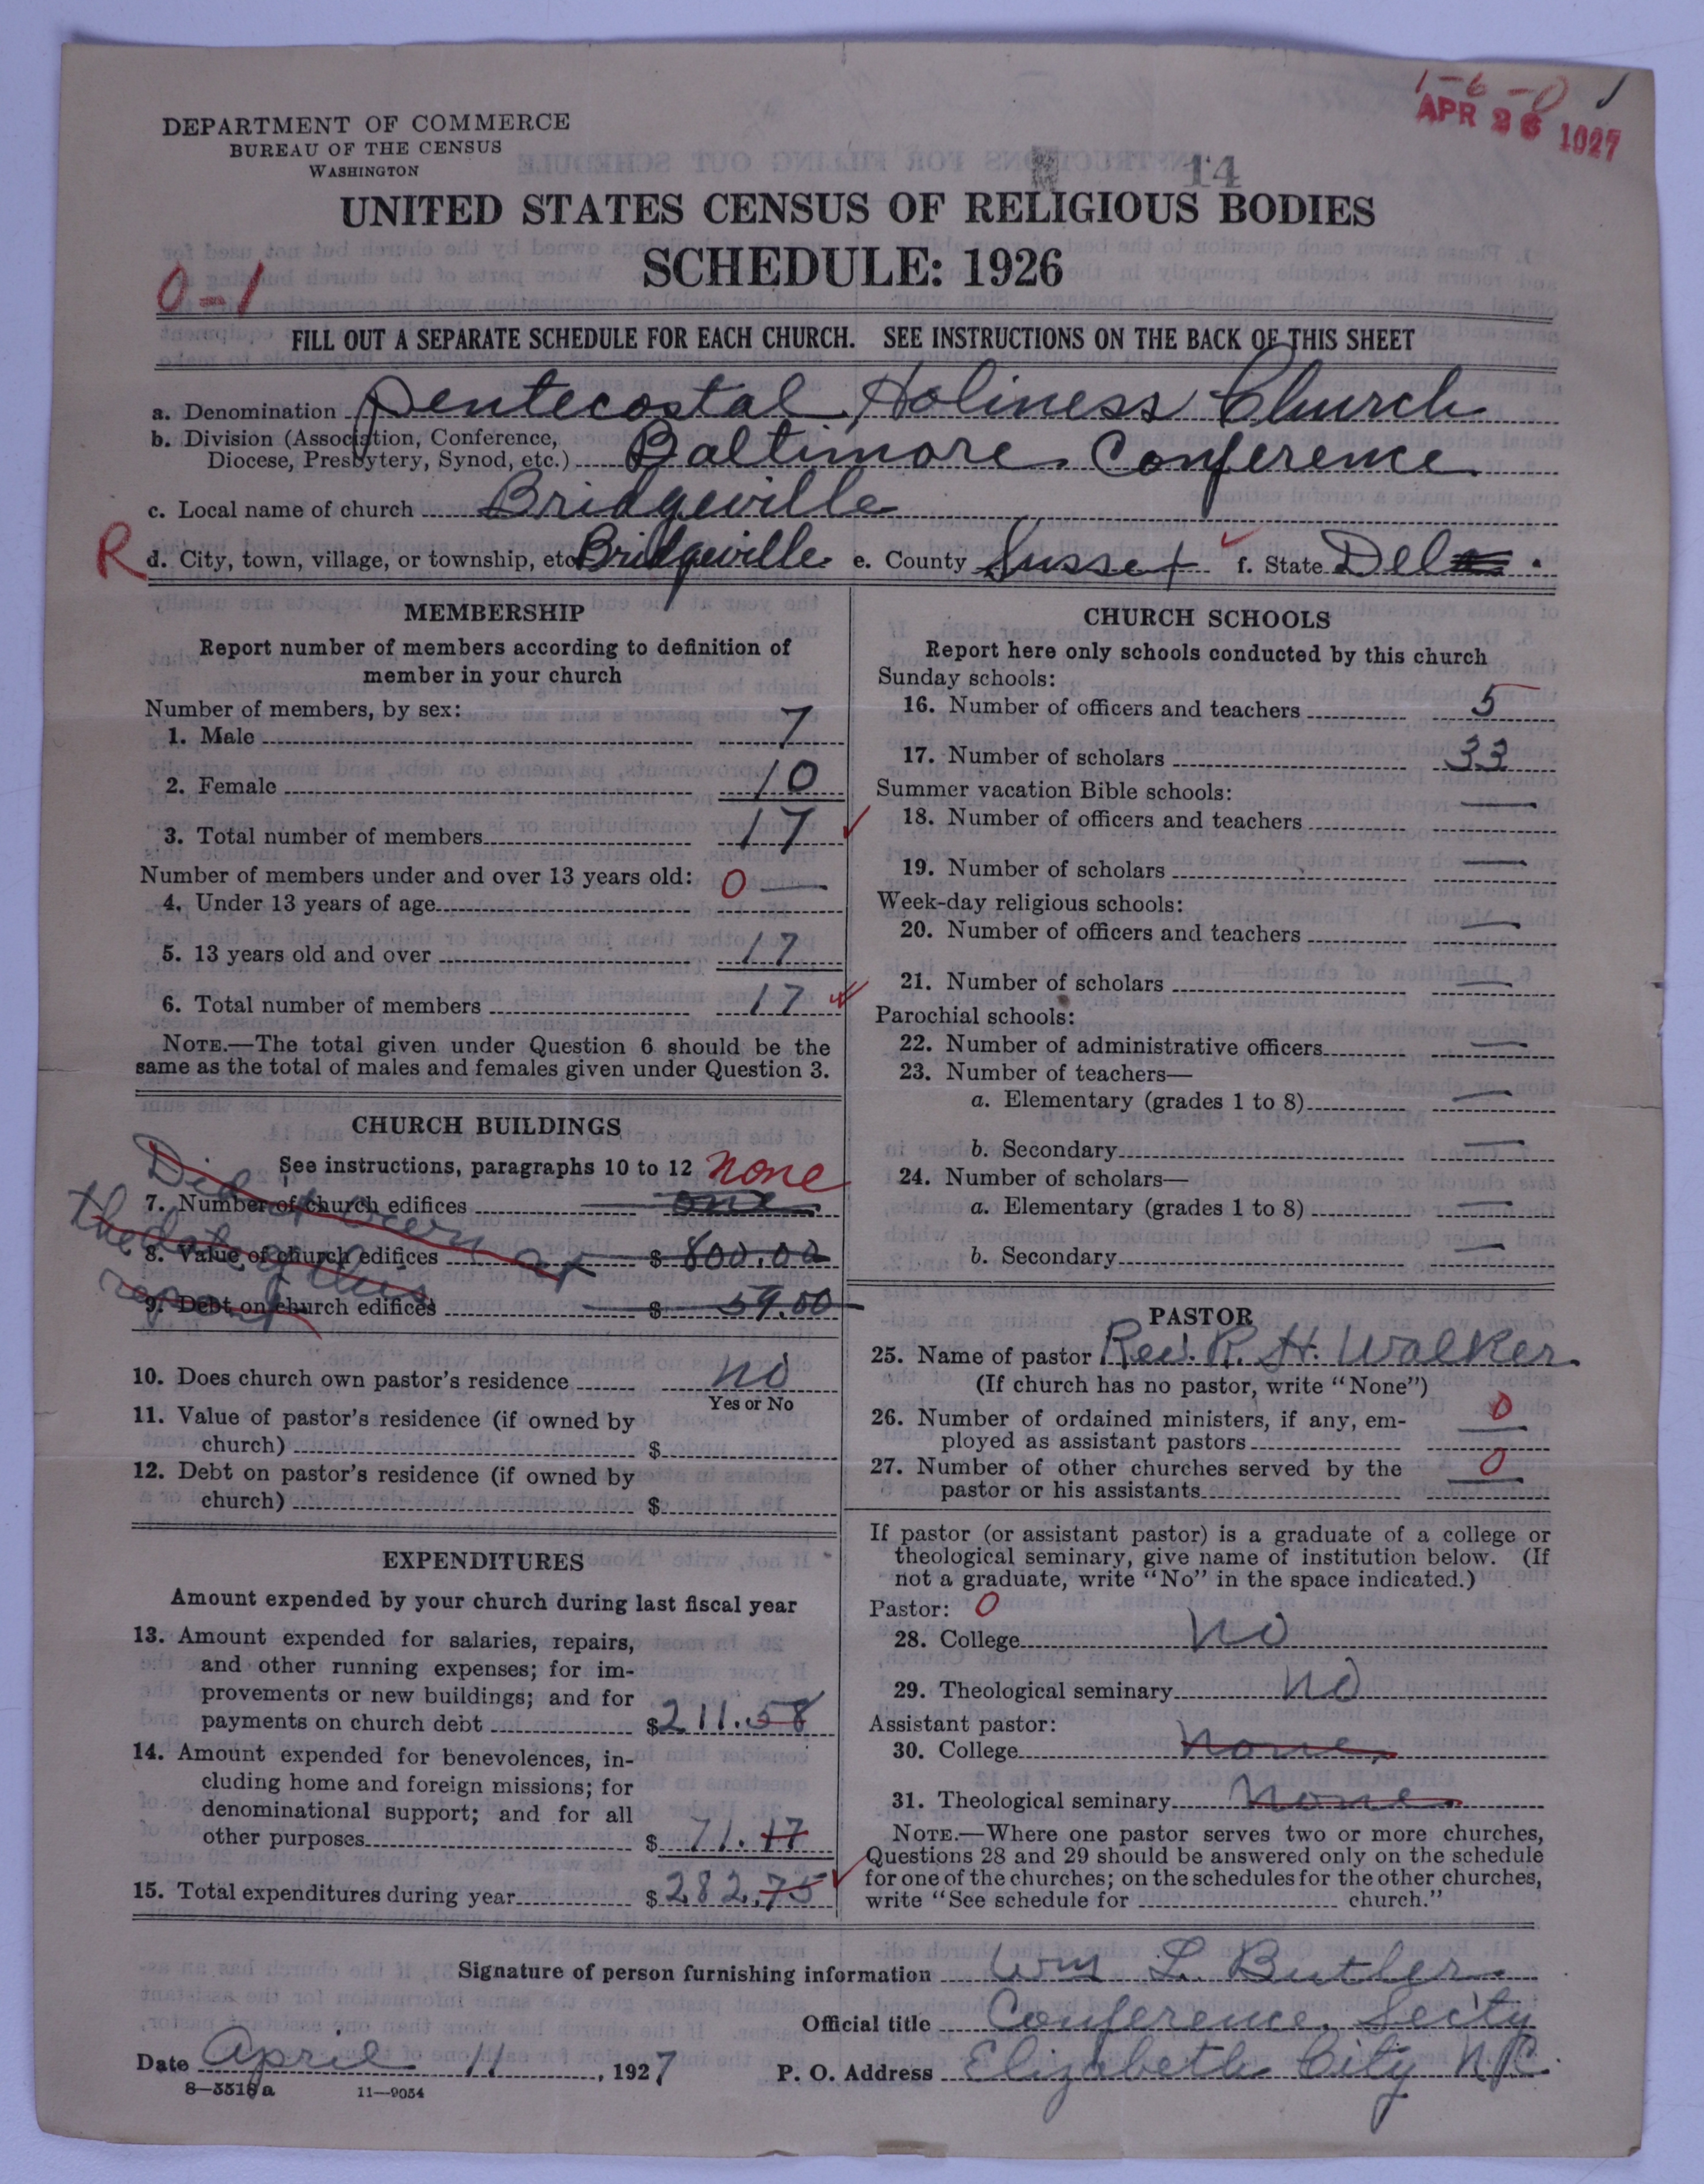 1-6-0
APR 26 1927
DEPARTMENT OF COMMERCE
BUREAU OF THE CENSUS
WASHINGTON
14
UNITED STATES CENSUS OF RELIGIOUS BODIES
SCHEDULE: 1926
0-1
FILL OUT A SEPARATE SCHEDULE FOR EACH CHURCH. SEE INSTRUCTIONS ON THE BACK OF THIS SHEET
a. Denomination Pentecostal Holiness Church
b. Division (Association, Conference,
Diocese, Presbytery, Synod, etc.) Baltimore Conference
c. Local name of church Bridgeville
R d. City, town, village, or township, etc Bridgeville e. County Sussex f. State Del.
MEMBERSHIP
Report number of members according to definition of
member in your church
Number of members, by sex:
1. Male 7
2. Female 10
3. Total number of members 17
Number of members under and over 13 years old:
4. Under 13 years of age 0 —
5. 13 years old and over 17
6. Total number of members 17
NOTE.—The total given under Question 6 should be the
same as the total of males and females given under Question 3.
CHURCH BUILDINGS
See instructions, paragraphs 10 to 12 none
7. Number of church edifices one
8. Value of church edifices $ 800.00
9. Debt on church edifices $ 59.00
Did not own at
the date of this
report
10. Does church own pastor's residence no
Yes or No
11. Value of pastor's residence (if owned by
church) $
12. Debt on pastor's residence (if owned by
church) $
EXPENDITURES
Amount expended by your church during last fiscal year
13. Amount expended for salaries, repairs,
and other running expenses; for im-
provements or new buildings; and for
payments on church debt $211.58
14. Amount expended for benevolences, in-
cluding home and foreign missions; for
denominational support; and for all
other purposes $ 71.17
15. Total expenditures during year $282.75
CHURCH SCHOOLS
Report here only schools conducted by this church
Sunday schools:
16. Number of officers and teachers 5
17. Number of scholars 33
Summer vacation Bible schools:
18. Number of officers and teachers —
19. Number of scholars —
Week-day religious schools:
20. Number of officers and teachers —
21. Number of scholars —
Parochial schools:
22. Number of administrative officers —
23. Number of teachers—
a. Elementary (grades 1 to 8) —
b. Secondary —
24. Number of scholars—
a. Elementary (grades 1 to 8) —
b. Secondary —
PASTOR
25. Name of pastor Rev. R. H. Walker
(If church has no pastor, write "None")
26. Number of ordained ministers, if any, em-
ployed as assistant pastors 0 —
27. Number of other churches served by the
pastor or his assistants 0 —
If pastor (or assistant pastor) is a graduate of a college or
theological seminary, give name of institution below. (If
not a graduate, write "No" in the space indicated.)
Pastor: 0
28. College No
29. Theological seminary No
Assistant pastor:
30. College None
31. Theological seminary None
NOTE.—Where one pastor serves two or more churches,
Questions 28 and 29 should be answered only on the schedule
for one of the churches; on the schedules for the other churches,
write "See schedule for church."
Signature of person furnishing information Wm L. Butler
Official title Conference Sec'ty
Date April 11, 1927 P. O. Address Elizabeth City N.C.
8-5518a 11-9054